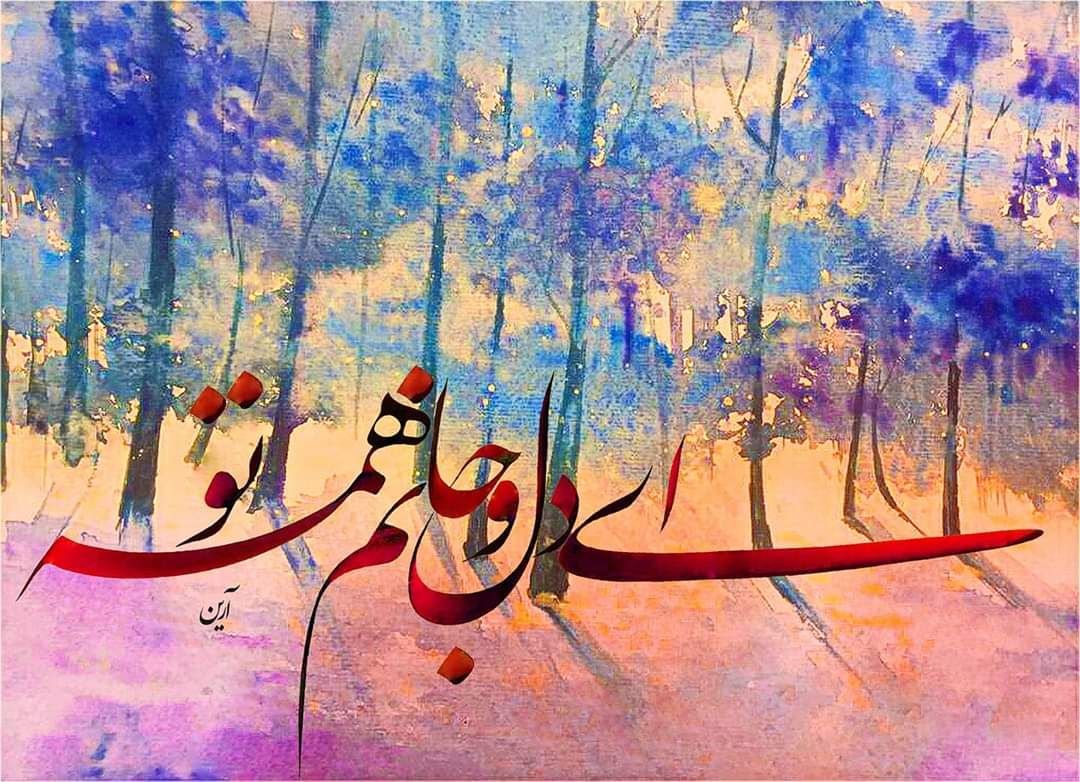 ای دل و جانم همه تو
آرین